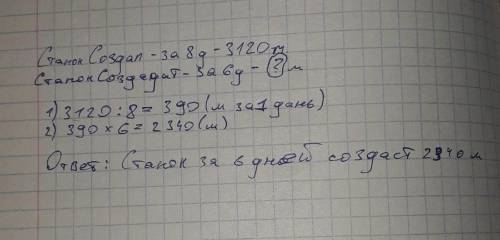 Станок Создал - за 8д - 3120 м
Станок Создадат - за 6д - ? м
1) 3120 : 8 = 390 (м за 1 дань)
2) 390 × 6 = 2340 (м)
Ответ: Станок за 6 дней создаст 2340 м